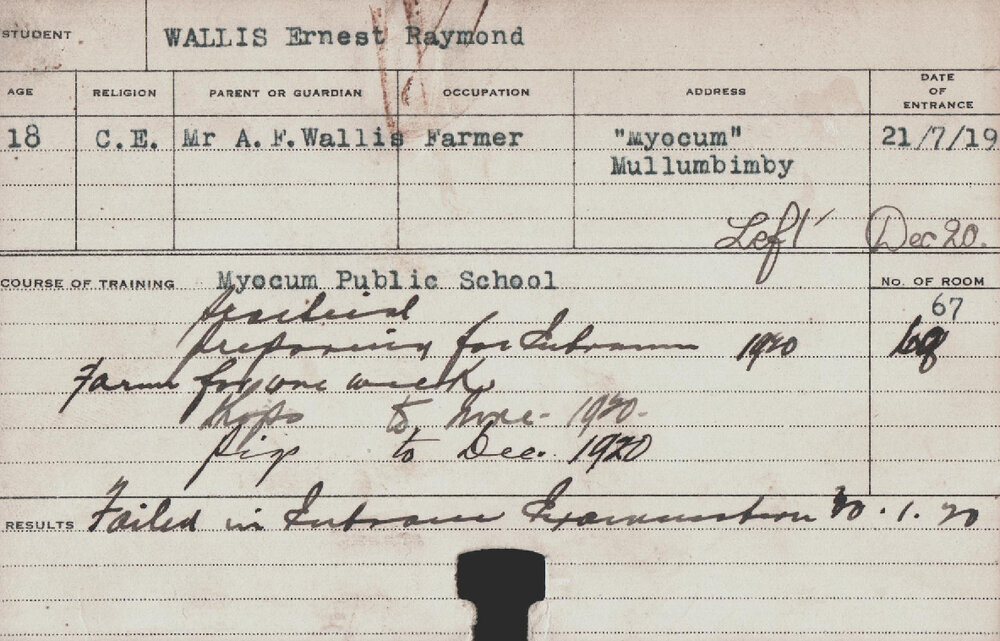 STUDENT WALLIS Ernest Raymond
AGE RELIGION PARENT OR GUARDIAN OCCUPATION ADDRESS DATE OF ENTRANCE
18 C.E. Mr A. F. Wallis Farmer "Myocum" 21/7/19
Mullumbimby
Left Dec 20.
COURSE OF TRAINING Myocum Public School No. OF ROOM
67
preparing for Entrance 1920
Farm for one week
to 1920.
Pigs to Dec. 1920
RESULTS Failed in Entrance Examination 30.1.20